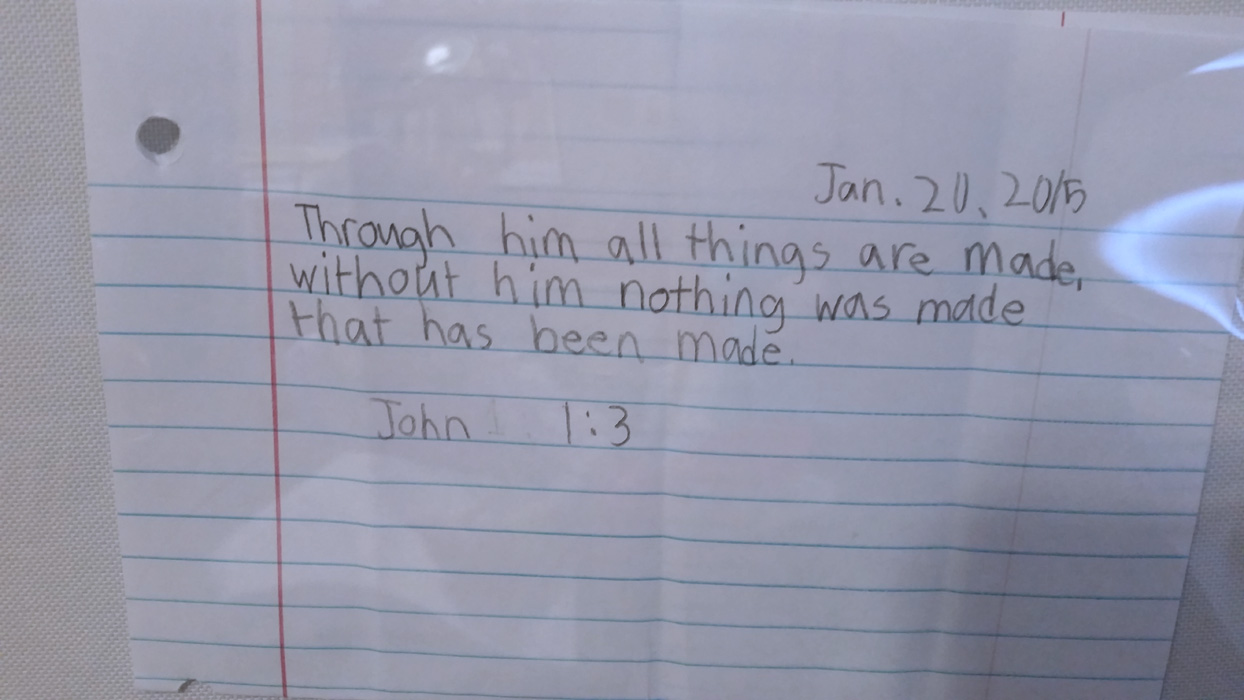 Jan. 20, 2015
Through him all things are made,
without him nothing was made
that has been made.
John 1:3